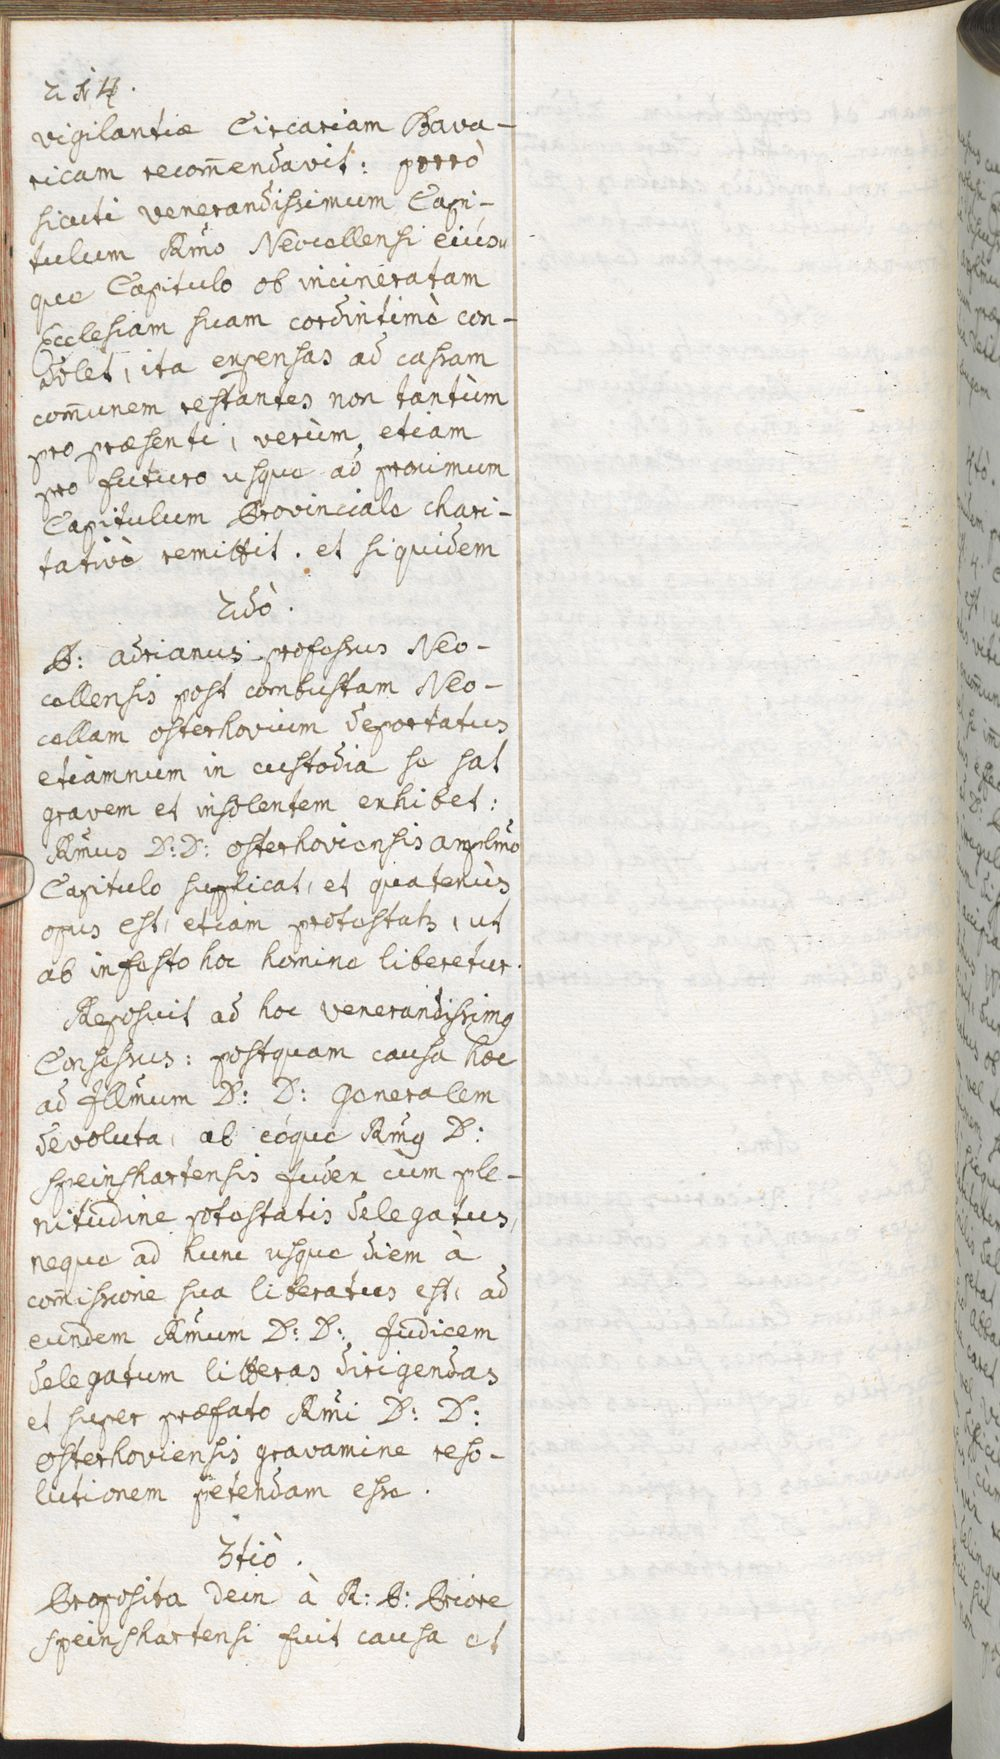 214.
vigilantiæ Circariam Bava-
ricam recom̄endavit: porrò
sicuti venerandissimum Capi-
tulum Rm̄o Neocellensi ejús-
que Capitulo ob incineratam
Ecclesiam suam cordintimè con-
dolet, ita expensas ad cassam
com̄unem restantes non tantùm
pro præsenti, verùm etiam
pro futuro usque ad proximum
Capitulum Provinciale chari-
tativè remittit. et siquidem
2dò.
P: Adrianus professus Neo-
cellensis post combustam Neo-
cellam osterhovium deportatus
etiamnum in custodia se sat
gravem et insolentem exhibet:
Rm̄us D: D: osterhoviensis amplm̄o
Capitulo supplicat, et quatenùs
opus est, etiam protestatr, ut
ab infesto hoc homine liberetur.
Reposuit ad hoc venerandissimg
Consessus: postquam causa hæc
ad Jllm̄um D: D: Generalem
devoluta, ab eóque Rm̄g D:
speinshartensis Judex cum ple-
nitudine potestatis delegatus,
neque ad hunc usque diem à
com̄issione sua liberatus est, ad
eundem Rm̄um D: D: Judicem
delegatum litteras dirigendas
et super præfato Rm̄i D: D:
osterhoviensis gravamine reso-
lutionem petendam esse.
3tiò.
Proposita dein à R: P: Priore
speinshartensi fuit causa et